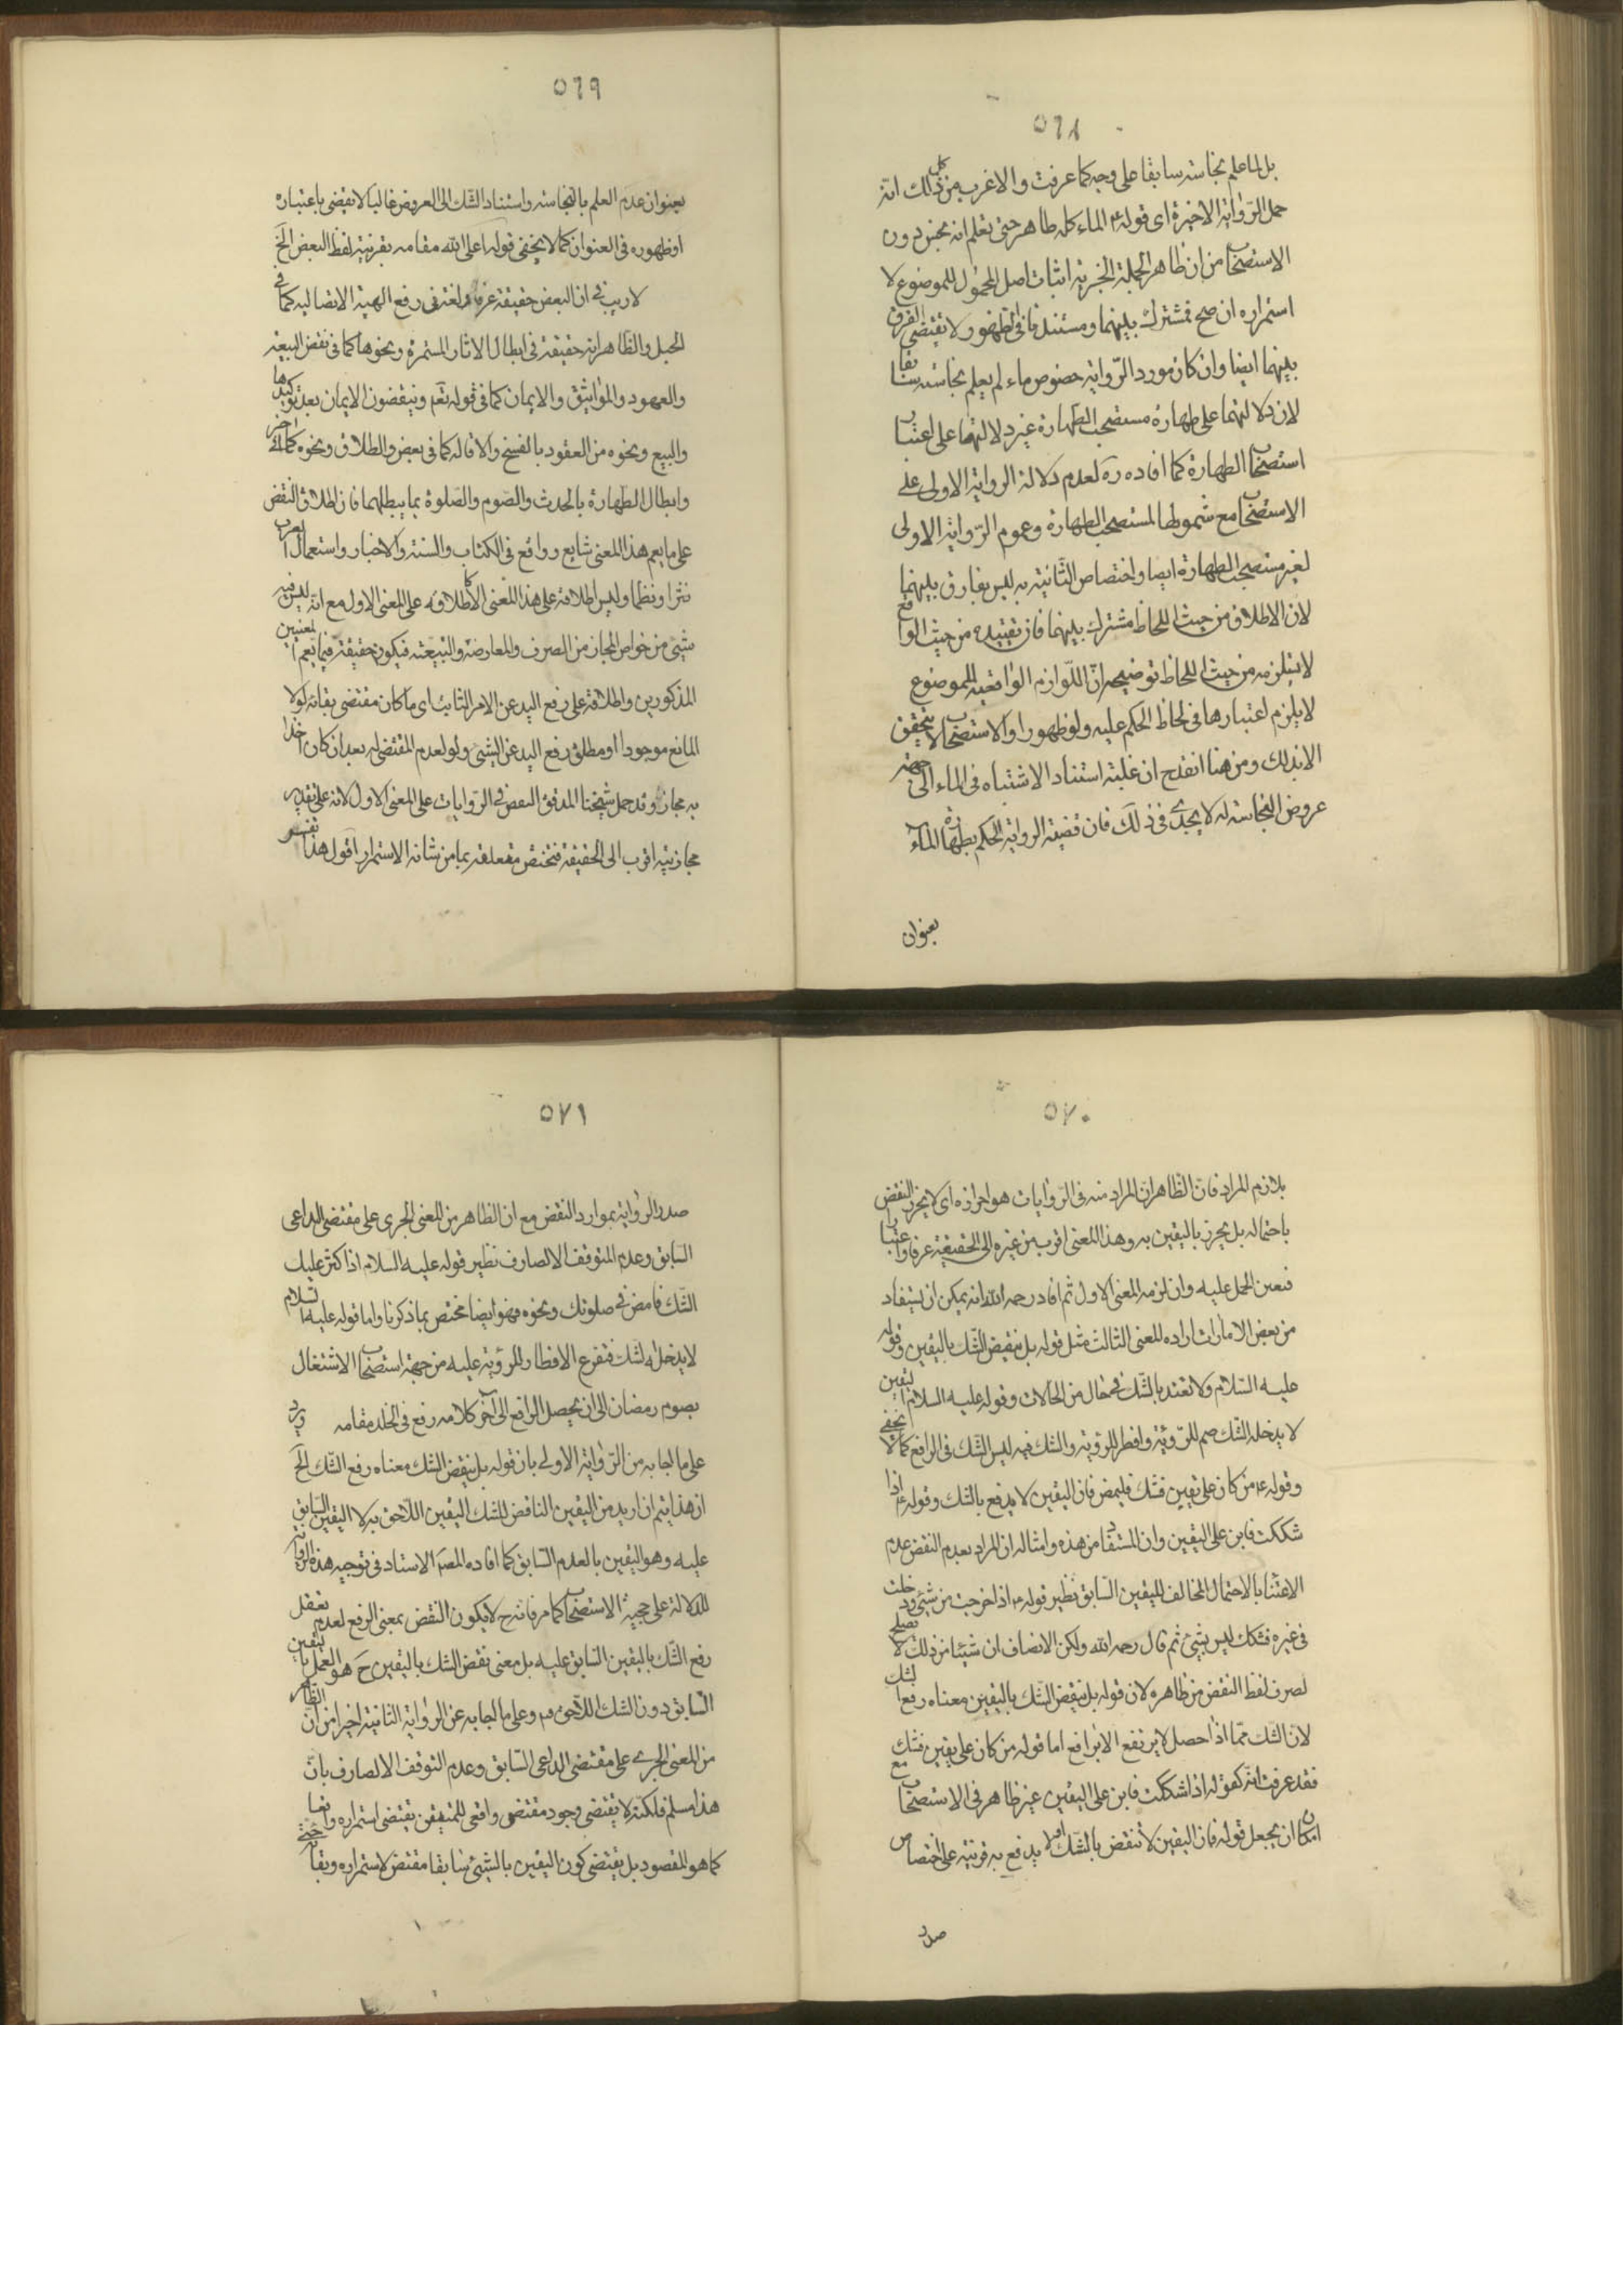 ٥٦٨
بل لما علم نجاسته سابقا على وجه كما عرفت والاغرب من كل ذلك انه
حمل الرواية الاخيرة اى قوله ع الماء كله طاهر حتى تعلم انه نجس دون
الاستصحاب من ان ظاهر الجملة الخبرية اثبات اصل المحمول للموضوع لا
استمراره ان صح فمشترك بينهما ومستند فافى الظهور لا يقتضى الفرق
بينهما ايضا وان كان مورد الرواية خصوص ماء لم يعلم نجاسته سابقا
لان دلالتهما على طهارة مستصحب الطهارة غير دلالتهما على اعتبار
استصحاب الطهارة كما افاده ره لعدم دلالة الرواية الاولى على
الاستصحاب مع شمولها لمستصحب الطهارة وعموم الرواية الاولى
لغير مستصحب الطهارة ايضا واختصاص الثانية به ليس بفارق بينهما
لان الاطلاق من حيث اللحاظ مشترك بينهما فان تقييده من حيث الواقع
لا يستلزمه من حيث اللحاظ توضيحه ان اللوازم الواقعية للموضوع
لا يلزم اعتبارها فى لحاظ الحكم عليه ولو ظهورا والاستصحاب لا يتحقق
الا بذلك ومن هنا انقدح ان غلبة استناد الاشتباه فى الماء الى جهة
عروض النجاسة له لا يجدى فى ذلك فان قضية الرواية الحكم بطهارة الماء
بعنوان
٥٦٩
بعنوان عدم العلم بالنجاسة واستناد الشك الى العروض غالبا لا يقضى باعتباره
او ظهوره فى العنوان كما لا يخفى قوله اعلى الله مقامه بقرينة لفظ النقض الخ
لا ريب فى ان النقض حقيقة عرفا ولغة فى رفع الهيئة الاتصالية كما فى
الحبل والظاهر انه حقيقة فى ابطال الاثار المستمرة ونحوها كما فى نقض البيعة
والعهود والمواثيق والايمان كما فى قوله تعم وينقضون الايمان بعد توكيدها
والبيع ونحوه من العقود بالفسخ والاقالة كما فى بعض والطلاق ونحوه كما فى اخر
وابطال الطهارة بالحدث والصوم والصلوة بما يبطلهما فان اطلاق النقض
على ما يعم هذا المعنى شايع وواقع فى الكتاب والسنة والاخبار واستعمال العرب
نثرا ونظما وليس اطلاقه على هذا المعنى الا كاطلاقه على المعنى الاول مع انه ليس فيه
شىء من خواص المجاز من الصرف والمعارضة والتبعية فيكون حقيقة فيما يعم المعنيين
المذكورين واطلاقه على رفع اليد عن الامر الثابت اى ما كان مقتضى بقائه لولا
المانع موجودا او مطلق رفع اليد عن الشىء ولو لعدم المقتضى له بعد ان كان اخذا
به مجاز وقد حمل شيخنا المدقق النقض فى الروايات على المعنى الاول لانه على تقدير
مجازيته اقرب الى الحقيقة فتختص متعلقه بما من شانه الاستمرار اقول هذا تفسير
٥٧٠
بلازم المراد فان الظاهر ان المراد منه فى الروايات هو احرازه اى لا يحرز النقض
باحتماله بل يحرز باليقين به وهذا المعنى اقرب من غيره الى الحقيقة عرفا واعتبارا
فتعين الحمل عليه وان لزمه المعنى الاول ثم افاد رحمه الله انه يمكن ان يستفاد
من بعض الامارات اراده للمعنى الثالث مثل قوله بل ينقض الشك باليقين وقوله
عليه السلام ولا تعتد بالشك فى حال من الحالات وقوله عليه السلام اليقين
لا يدخله الشك صم للرؤية وافطر للرؤية والشك فيه ليس الشك فى الرافع كما لا يخفى
وقوله ع من كان على يقين فشك فليمض فان اليقين لا يدفع بالشك وقوله ع اذا
شككت فابن على اليقين وان المستفاد من هذه وامثاله ان المراد بعدم النقض عدم
الاعتناء بالاحتمال المخالف لليقين السابق نظير قوله ع اذا خرجت من شىء ودخلت
فى غيره فشكك ليس بشىء ثم قال رحمه الله ولكن الانصاف ان شيئا من ذلك لا يصلح
لصرف لفظ النقض من ظاهره لان قوله بل ينقض الشك باليقين معناه رفع الشك
لان الشك مما اذا حصل لا يرتفع الا برافع اما قوله من كان على يقين فشك
فقد عرفت انه كقوله اذا شككت فابن على اليقين غير ظاهر فى الاستصحاب مع
امكان ان يجعل قوله فان اليقين لا ينقض بالشك او لا يدفع به قرينة على اختصاص
صدر
٥٧١
صدر الرواية بموارد النقض مع ان الظاهر من المعنى الجرى على مقتضى الداعى
السابق وعدم التوقف الا لصارف نظير قوله عليه السلام اذا كثر عليك
الشك فامض فى صلوتك ونحوه فهو ايضا مختص بما ذكرنا واما قوله عليه السلام
لا يدخله الشك فتفرع الافطار للرؤية عليه من جهة استصحاب الاشتغال
بصوم رمضان الى ان يحصل الرافع الى آخر كلامه رفع فى الخلد مقامه ويرد
على ما اجاب به من الرواية الاولى بان قوله بل ينقض الشك معناه رفع الشك الخ
ان هذا يتم ان اريد من اليقين الناقض للشك اليقين اللاحق به لا اليقين السابق
عليه وهو اليقين بالعدم السابق كما افاده المصر الاستاد فى توجيه هذه الرواية
للدلالة على حجية الاستصحاب كما مر فانه ح لا يكون النقض بمعنى الرفع لعدم تعقل
رفع الشك باليقين السابق عليه بل معنى نقض الشك باليقين ح هو العمل باليقين
السابق دون الشك اللاحق وعلى ما اجاب به عن الرواية الثانية اخيرا من ان الظاهر
من المعنى الجرى على مقتضى الداعى السابق وعدم التوقف الا لصارف بان
هذا مسلم فلكنه لا يقتضى وجود مقتضى واقعى للمتيقن يقتضى استمراره وابقائه
كما هو المقصود بل يقتضى كون اليقين بالشىء سابقا مقتض لاستمراره وبقائه